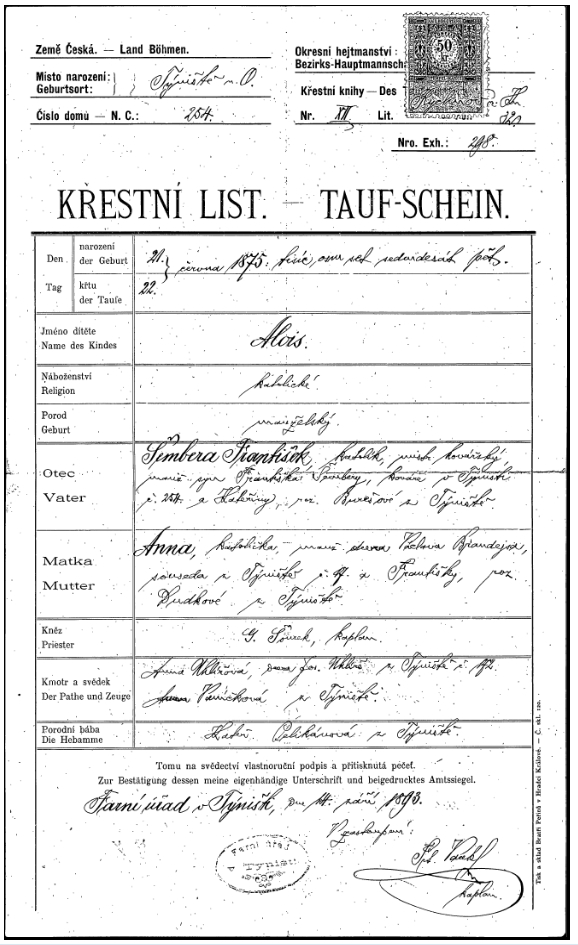 Země Česká. — Land Böhmen.
Místo narození:
Geburtsort:
Týniště n. O.
Číslo domů — N. C.: 254.
Okresní hejtmanství:
Bezirks-Hauptmannsch
50
Křestní knihy — Des
Nr. XII Lit.
Nro. Exh.: 298.
KŘESTNÍ LIST. — TAUF-SCHEIN.
Den
Tag
narození
der Geburt
křtu
der Taufe
21.
22.
června 1875: tisíc, osm set sedmdesát pět.
Jméno dítěte
Name des Kindes
Alois.
Náboženství
Religion
katolické
Porod
Geburt
manželský.
Otec
Vater
Šimbera František, katolík, mistr kovářský
manž. syn Františka Šimbery, kováře v Týništi
č. 254. a Kateřiny, roz. Burešové z Týniště.
Matka
Mutter
Anna, katolička, manž. dcera Václava Brandejsa,
souseda z Týniště č. 97. a Františky, roz.
Dudkové z Týniště
Kněz
Priester
G. Šourek, kaplan.
Kmotr a svědek
Der Pathe und Zeuge
Anna Uhlířová, dcera Jos. Uhlíře z Týniště č. 172.
Vaníčková z Týniště.
Porodní bába
Die Hebamme
Kateř. Pelikánová z Týniště.
Tomu na svědectví vlastnoruční podpis a přitisknutá pečeť.
Zur Bestätigung dessen meine eigenhändige Unterschrift und beigedrucktes Amtssiegel.
Farní úřad v Týništi, dne 14. září 1893.
V zastoupení:
Farní úřad
v Týništi
kaplan.
Tisk a sklad Bratří Peřinů v Hradci Králové. — Č. skl. 120.